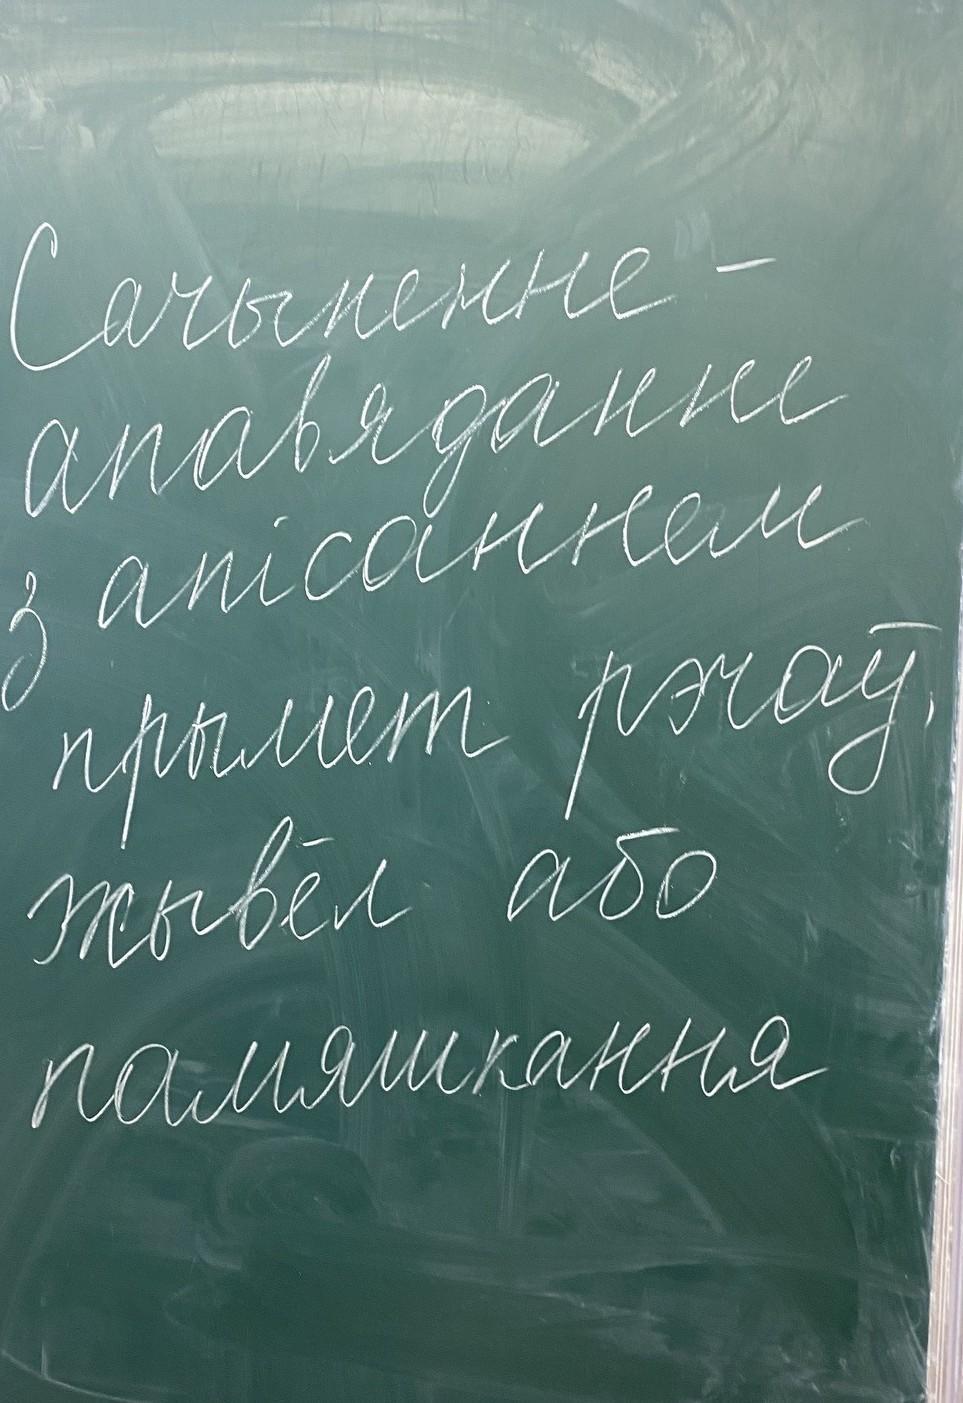 Сачыненне -
апавяданне
з апісаннем
прымет рэчаў,
жывёл або
памяшкання